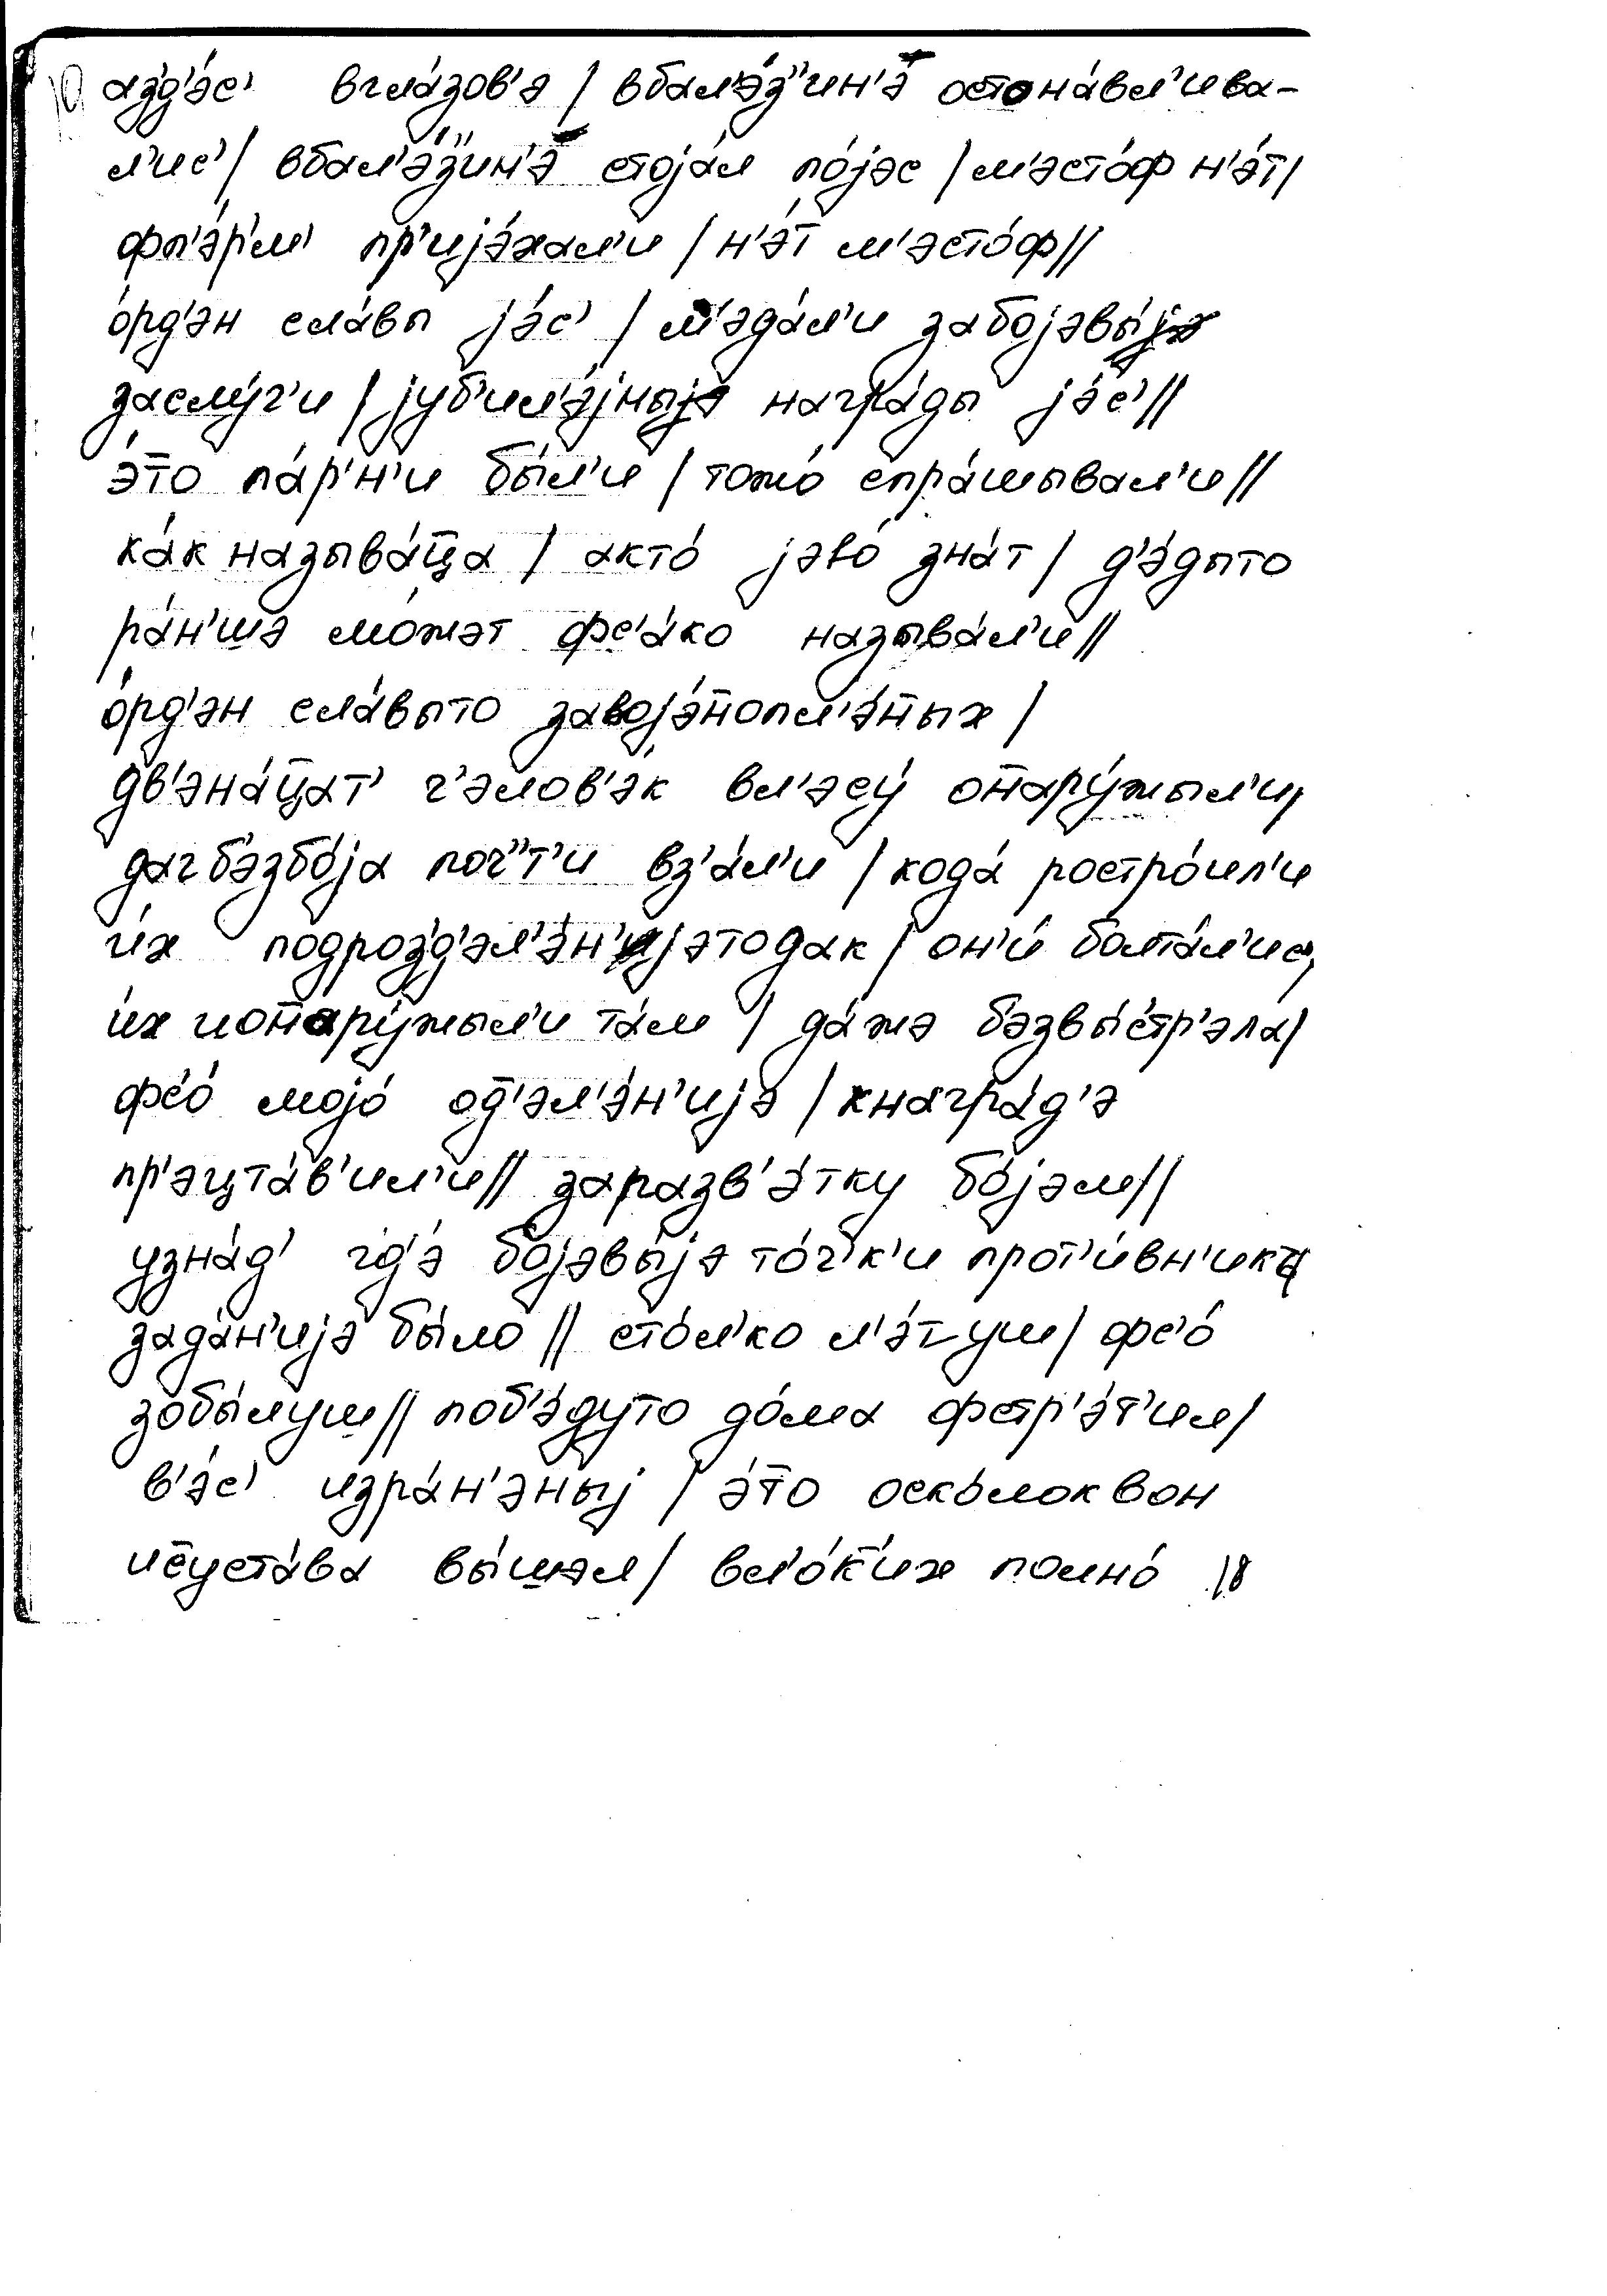 азд'э́с' вгла́зов'э / вбал'э́з"ин'э остона́вл'ива-
л'ис' / вбал'э́з"ин'э стоjа́л по́jэс / м'эсто́ф н'э́т /
фп'э́р'м' пр'иjэ́хал'и / н'э́т м'эсто́ф //
о́рд'эн сла́вы jэ́с' / м'эда́л'и забоjэвы́jэ
заслу́г'и / jуб'ил'э́jныjэ награ́ды jэ́с' //
э́то па́р'н'и бы́л'и / тожо́ спра́шывал'и //
ка́к называ́ц̄а / акто́ jэво́ зна́т / д'э́дыто
ра́н'шэ мо́жэт фс'а́ко называ́л'и //
о́рд'эн сла́выто завоjэ́н̄опл'э́н̄ых /
дв'эна́ц̄ат' ч'элов'э́к вл'эсу́ оп̄ару́жыл'и /
дагб'эзбо́jа поч'"т'и вз'а́л'и / кода́ ростро́ил'и
и́х подрозд'эл'э́н'иjэтодак / он'и́ болта́л'ис'
и́х иоп̄ару́жыл'и та́м / да́жэ б'эзвы́стр'эла /
фс'о́ моjо́ од̄'эл'э́н'иjэ / кнагра́д'э
пр'эцта́в'ил'и // заразв'э́тку бо́jэм //
узна́д' гд'э́ боjэвы́jэ то́ч'к'и прот'и́вн'ика
зада́н'иjэ бы́ло // сто́л'ко л'э́туш / фс'о́
зобы́луш // поб'э́дуто до́ма фстр'э́т'ил /
в'э́с' изра́н'эныj / э́то оско́локвон
ис̄уста́ва вы́шэл / вл'о́к'их полно́ 18